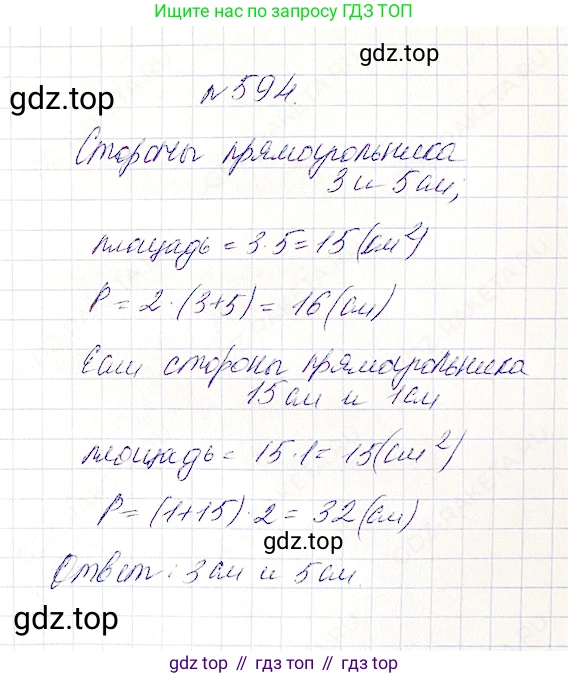 Ищите нас по запросу ГДЗ ТОП
gdz.top
№594.
Стороны прямоугольника
3 и 5 см;
площадь = 3·5=15(см²)
P = 2·(3+5) = 16(см)
Если стороны прямоугольника
15 см и 1 см
площадь = 15·1=15(см²)
P=(1+15)·2=32(см)
gdz.top
Ответ: 3 см и 5 см.
gdz.top
gdz.top
gdz top // гдз топ // gdz top